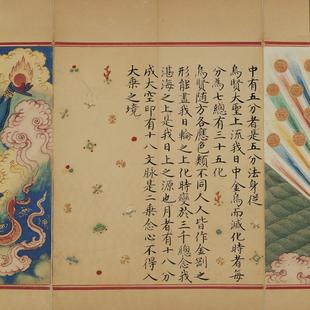 中有五分者是五分法身從
烏賢大聖上流我日中金烏而滅化時者每
分為七總有三十五化
烏賢隨方各應色類不同人人皆作金剛之
形能盡我日輪之上化時變於三千總念我
湛海之上是我日上之源也月者有十八分
成大空印有十八文脈是二乘念心不得入
大乘之境